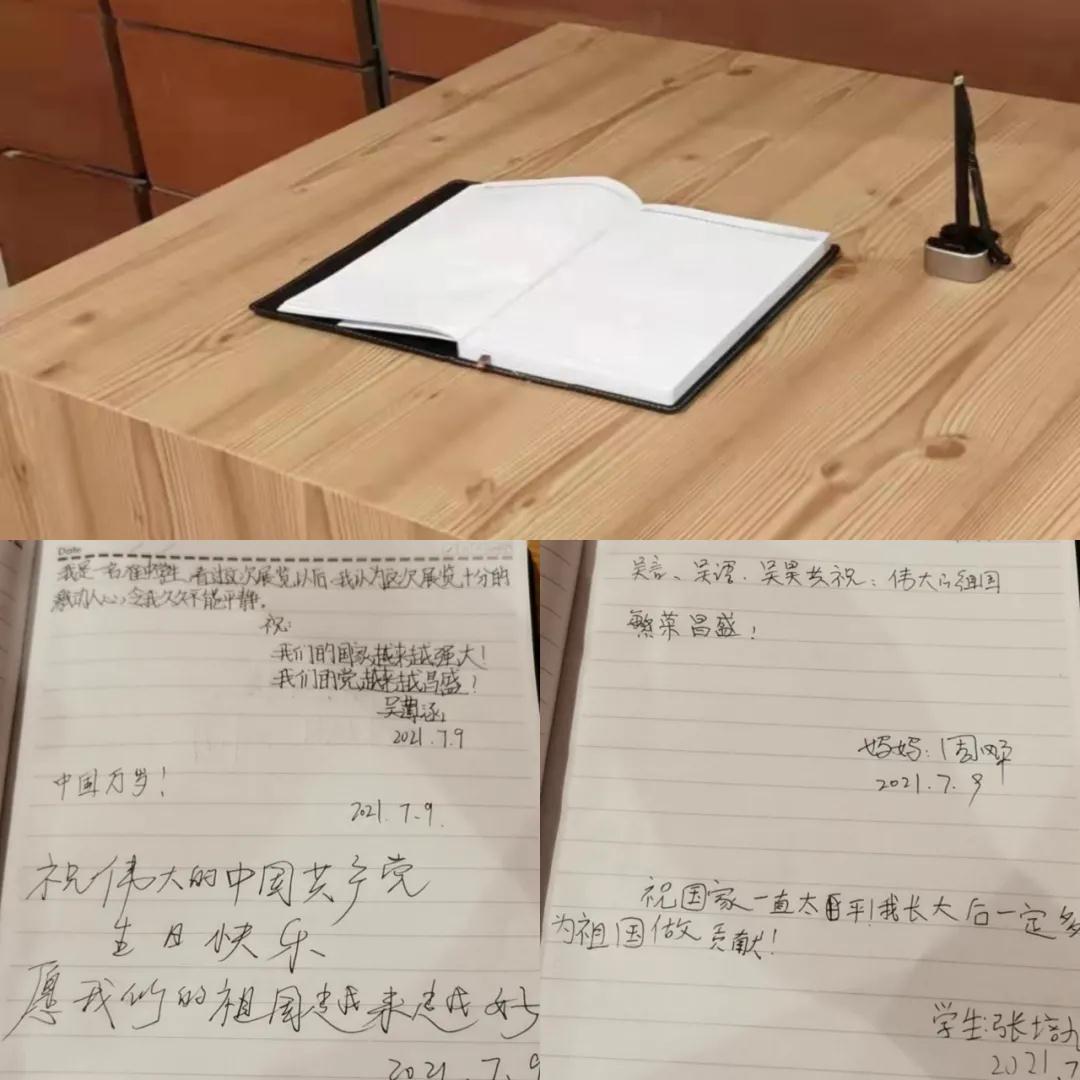 Date
我是一名准中学生,看过这次展览以后,我认为这次展览十分的
激动人心,令我久久不能平静。
祝:
我们的国家越来越强大!
我们的党越来越昌盛!
吴涵
2021.7.9
中国万岁!
2021.7.9.
祝伟大的中国共产党
生日快乐
愿我们的祖国越来越好
2021.7.9
吴言、吴语、吴果共祝:伟大的祖国
繁荣昌盛!
妈妈:周
2021.7.9
祝国家一直太平!我长大后一定多
为祖国做贡献!
学生:张培
2021.7